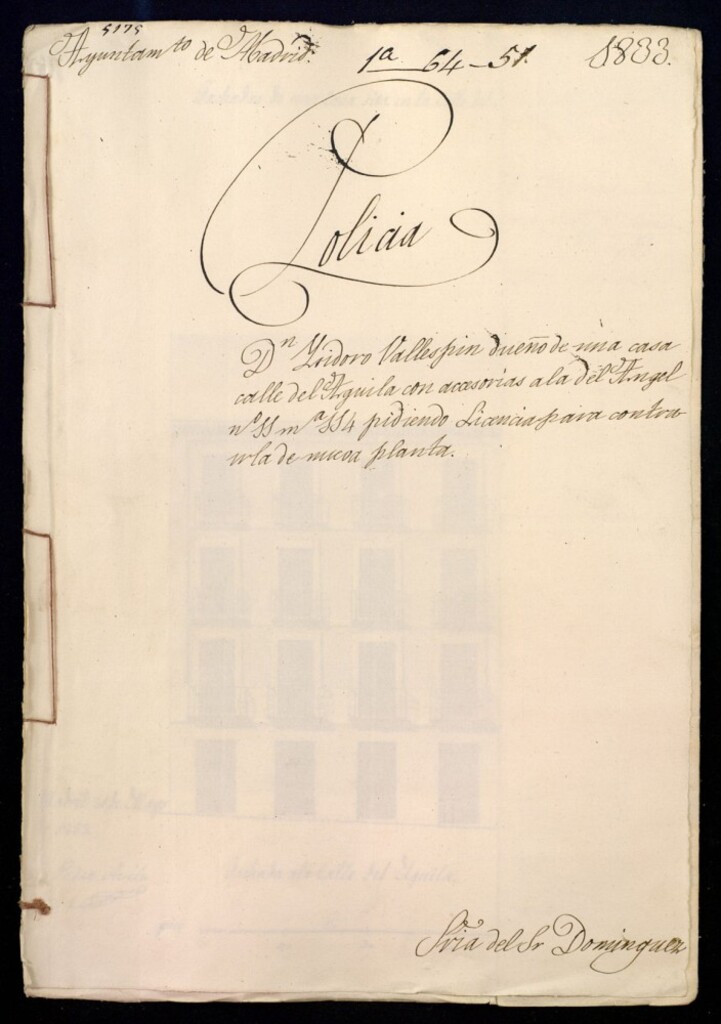 5175
Ayuntam.to de Madrid.
1a 64-51.
1833.
Policia
Dn Ysidoro Vallespin dueño de una casa
calle del Aguila con accesorias ala del Angel
no 11 ma 114 pidiendo Licencia para contru
irla de nueva planta.
Sria del Sr Dominguez